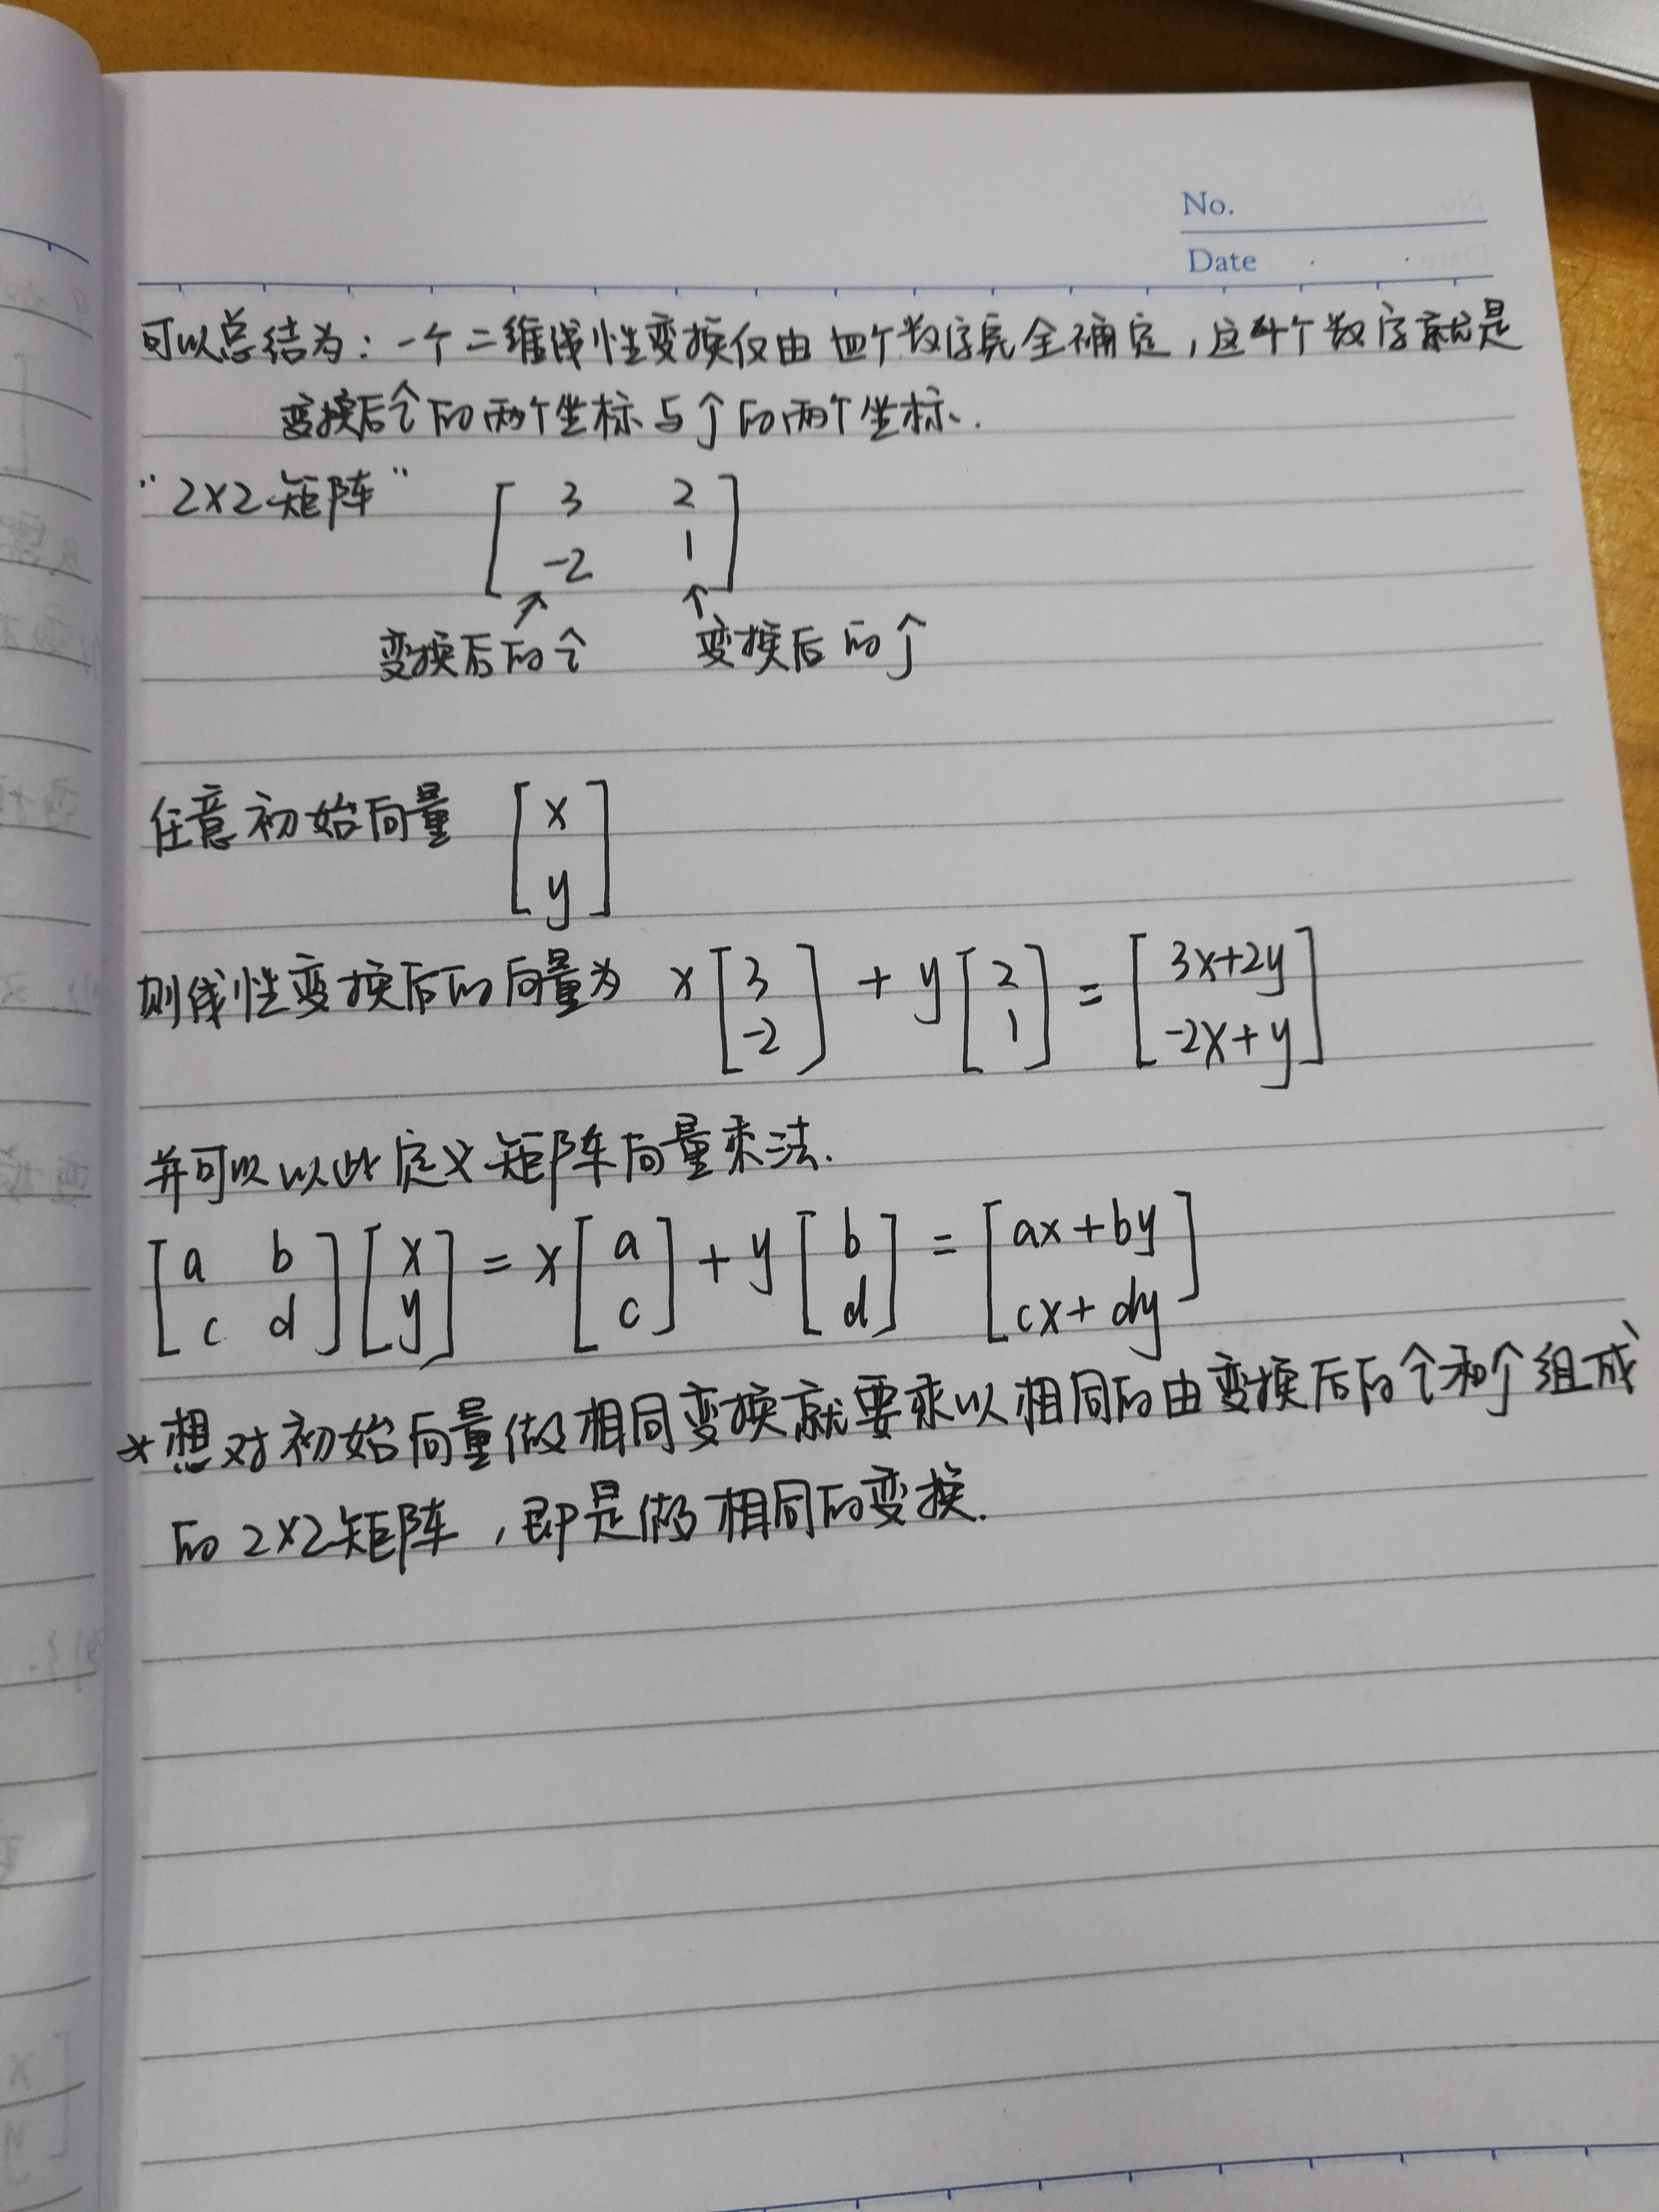 No.
Date
可以总结为：一个二维线性变换仅由四个数字完全确定，这4个数字就是
变换后î的两个坐标与ĵ的两个坐标.
"2×2矩阵" [3 2
-2 1]
↗ ↑
变换后的î 变换后的ĵ
任意初始向量 [x
y]
则线性变换后的向量为 x[3 -2] + y[2 1] = [3x+2y
-2x+y]
并可以以此定义矩阵向量乘法.
[a b
c d][x y] = x[a c] + y[b d] = [ax+by
cx+dy]
*想对初始向量做相同变换就要乘以相同的由变换后的î和ĵ组成
的2×2矩阵，即是做相同的变换.